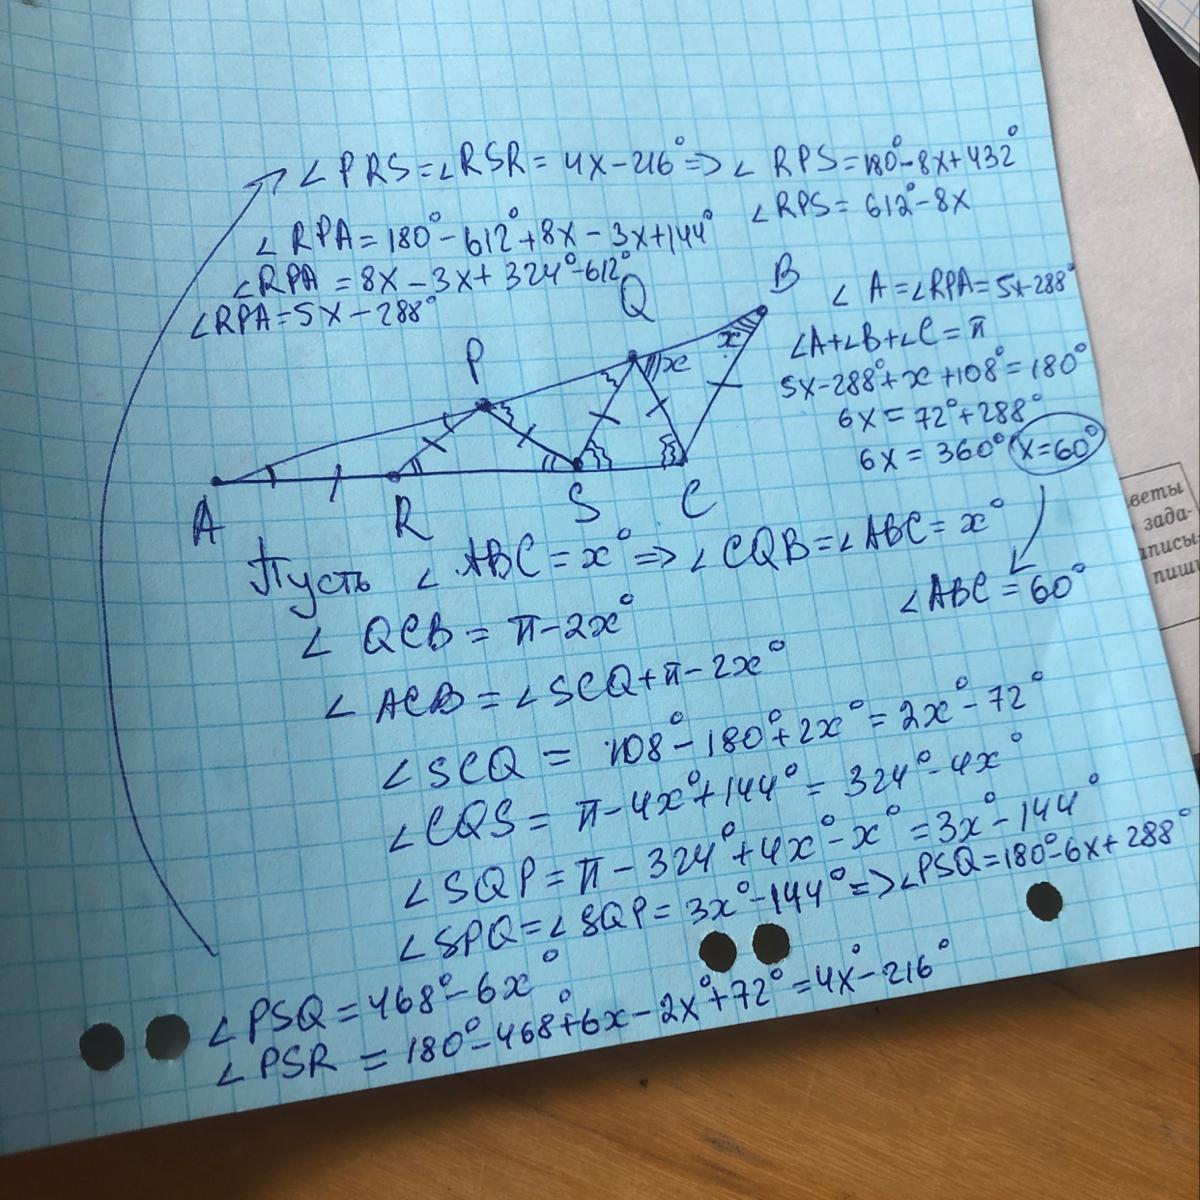 ∠PRS=∠RSR= 4x-216°=> ∠RPS=180°-8x+432°
∠RPS= 612°-8x
∠RPA=180°-612°+8x-3x+144°
∠RPA=8x-3x+324°-612°
∠RPA=5x-288°
∠A=∠RPA=5x-288°
∠A+∠B+∠C=π
5x-288°+x+108°=180°
6x=72°+288°
6x=360° x=60°
∠ABC=60°
A
R
P
S
Q
C
B
x
x
Пусть ∠ABC=x°=>∠CQB=∠ABC=x°
∠QCB=π-2x°
∠ACB=∠SCQ+π-2x°
∠SCQ= 108°-180°+2x°=2x°-72°
∠CQS=π-4x°+144°=324°-4x°
∠SQP=π-324°+4x°-x°=3x°-144°
∠SPQ=∠SQP=3x°-144°=>∠PSQ=180°-6x+288°
∠PSQ=468°-6x°
∠PSR=180°-468°+6x-2x°+72°=4x°-216°
веты
зада-
пиш